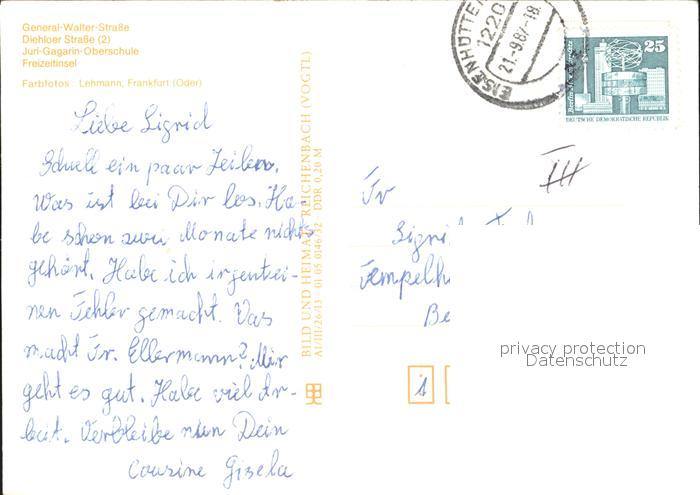 General-Walter-Straße
Diehloer Straße (2)
Juri-Gagarin-Oberschule
Freizeitinsel
Farbfotos: Lehmann, Frankfurt (Oder)
Liebe Sigrid
Schnell ein paar Zeilen.
Was ist bei Dir los. Ha-
be schon zwei Monate nichts
gehört. Habe ich irgentei-
nen Fehler gemacht. Was
macht Fr. Ellermann? Mir
geht es gut. Habe viel Ar-
beit. Verbleibe nun Dein
Cousine Gisela
BILD UND HEIMAT REICHENBACH (VOGTL)
A1/III/26/13 01 05 0146/32 DDR 0,20 M
EISENHÜTTEN
1220
21.-9.87-18
25
DEUTSCHE DEMOKRATISCHE REPUBLIK
III
Fr
Sigri
Tempelh
Be
privacy protection
Datenschutz